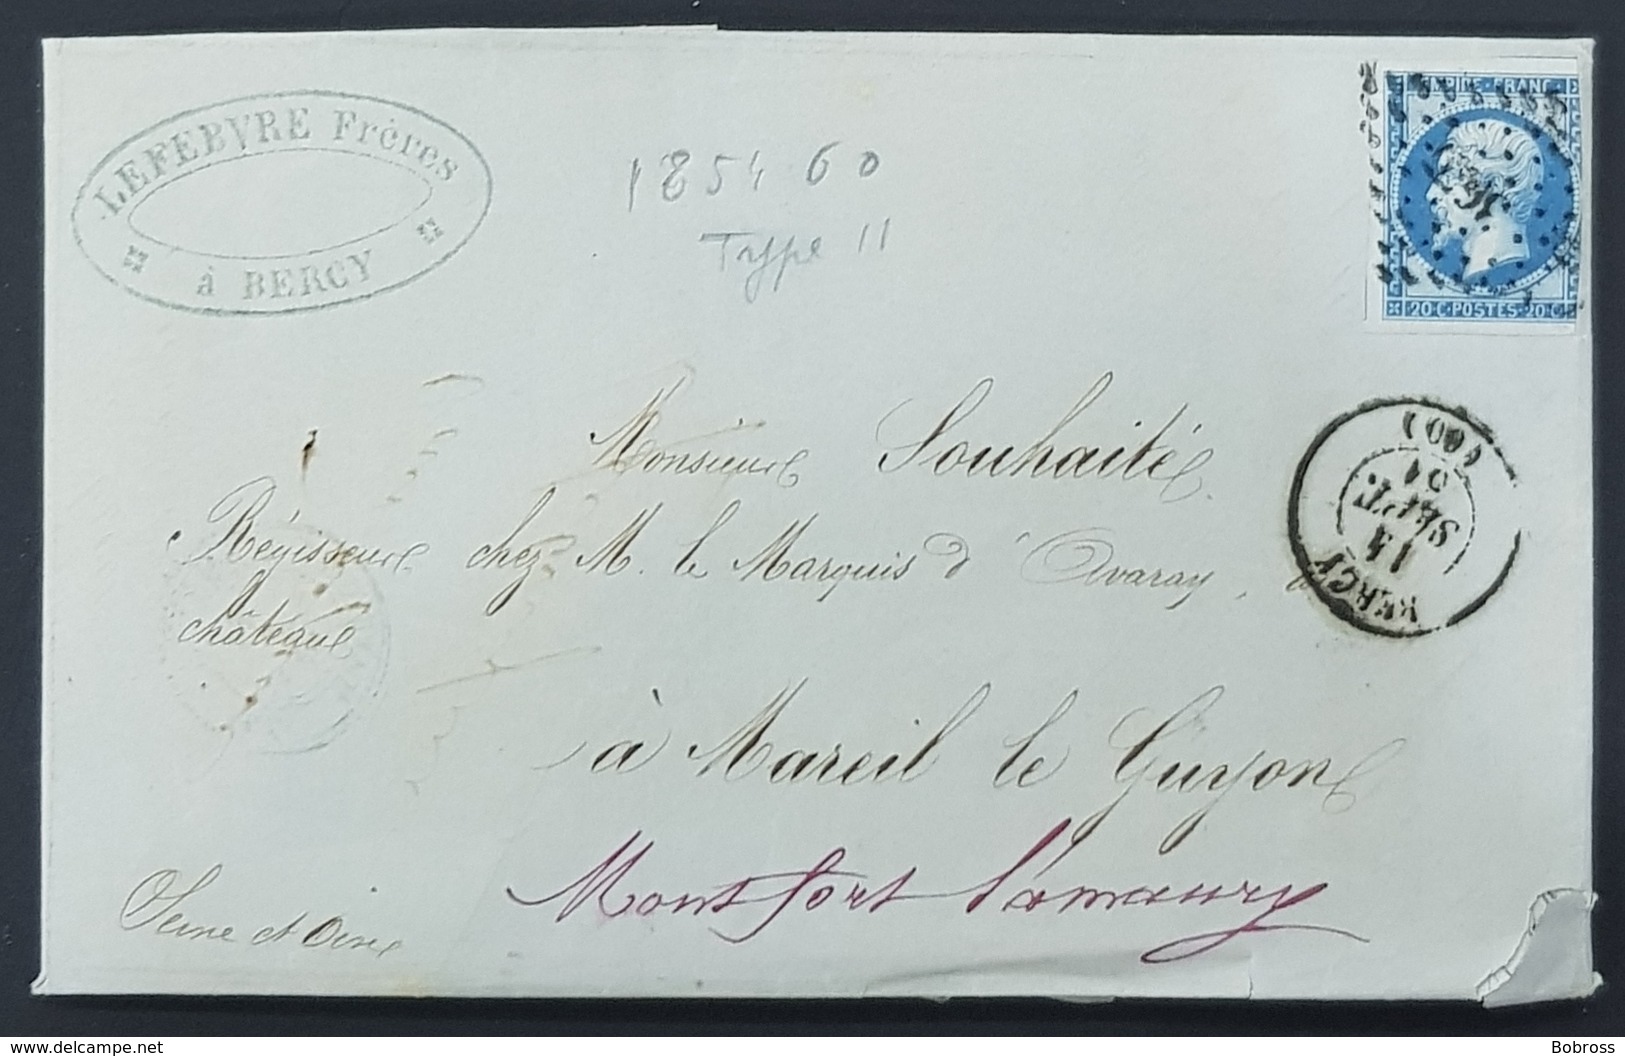 LEFEBVRE Frères
à BERCY
1854 60
Type II
EMPIRE FRANC
20·C·POSTES·20·C
BERCY
14
SEPT.
(60)
Monsieur Souhaité
Régisseur chez M. le Marquis d'Avaray, au
château
à Mareil le Guyon
Montfort l'amaury
Seine et Oise
delcampe.net
Bobross